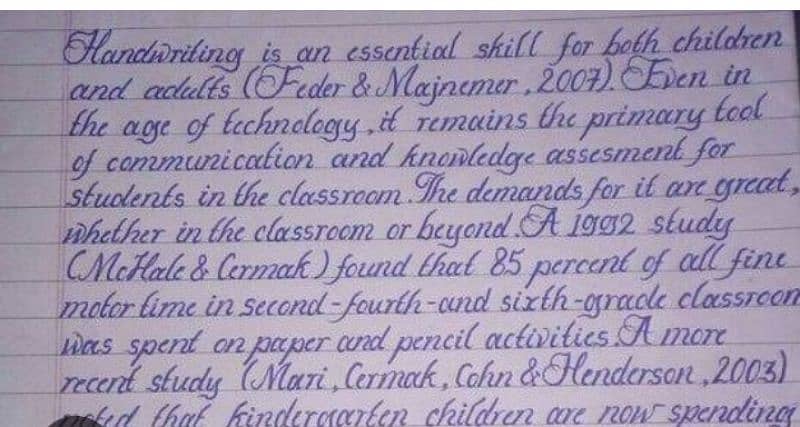 Handwriting is an essential skill for both children
and adults (Feder & Majnemer, 2007). Even in
the age of technology, it remains the primary tool
of communication and knowledge assesment for
students in the classroom. The demands for it are great,
whether in the classroom or beyond. A 1992 study
(McHale & Cermak) found that 85 percent of all fine
motor time in second-fourth-and sixth-grade classroom
was spent on paper and pencil activities. A more
recent study (Mari, Cermak, Cohn & Henderson, 2003)
that kindergarten children are now spending